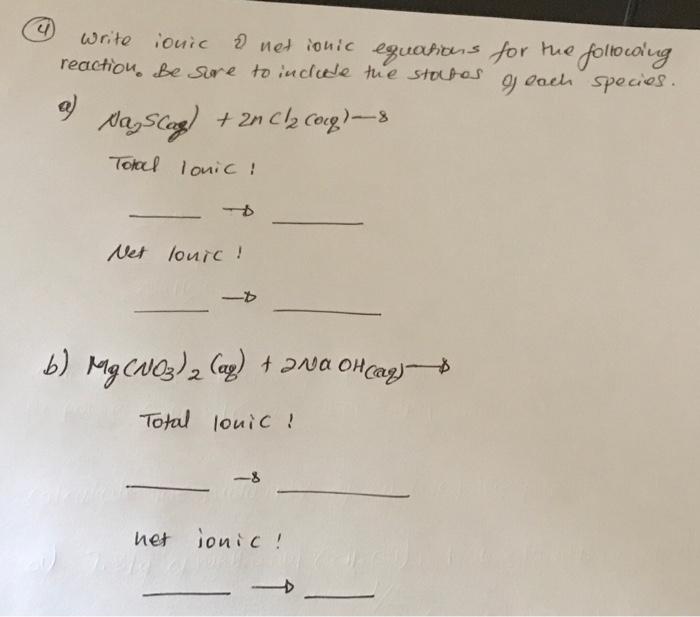 ④ Write ionic & net ionic equations for the following
reaction. Be sure to include the states of each species.
a) Na₂S(aq) + ZnCl₂(aq) →
Total Ionic :
____ → ____
Net Ionic :
____ → ____
b) Mg(NO₃)₂ (aq) + 2NaOH(aq) →
Total Ionic :
____ → ____
net ionic :
____ → ____